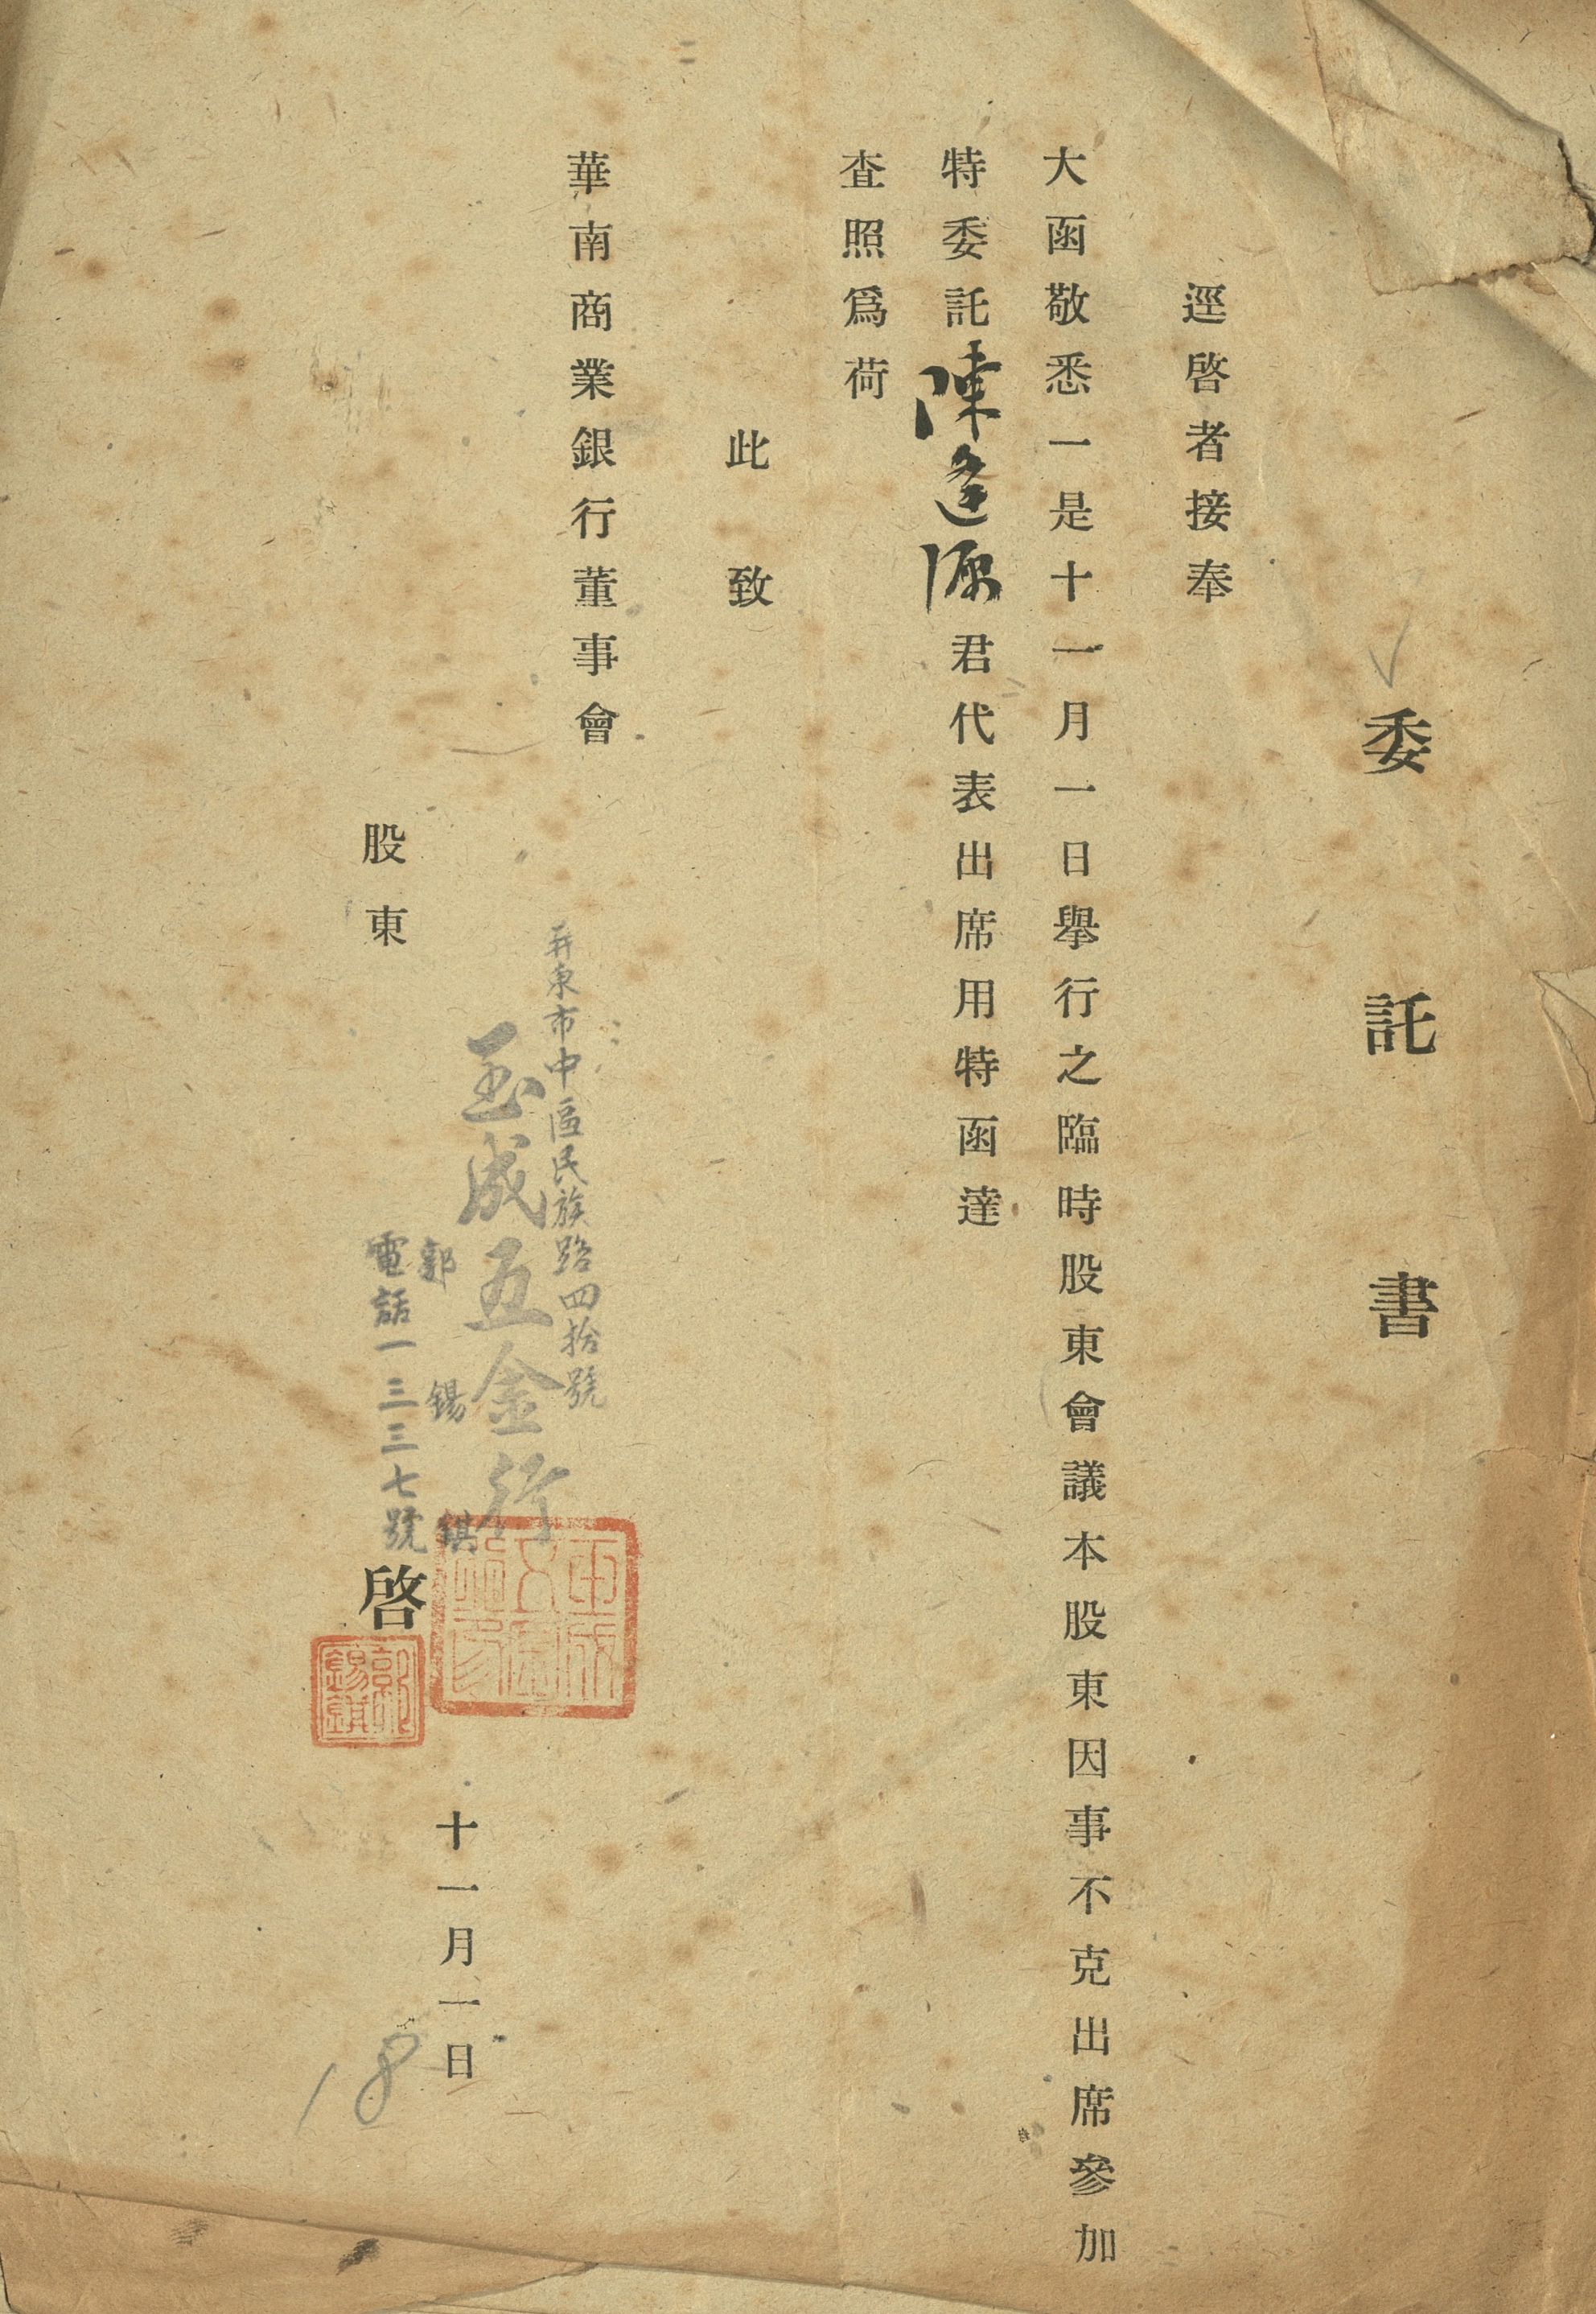 委託書
逕啓者接奉
大函敬悉一是十一月一日舉行之臨時股東會議本股東因事不克出席參加
特委託陳逢源君代表出席用特函達
査照爲荷
此致
華南商業銀行董事會
屏東市中區民族路四拾號
玉成五金行
郭錫錤
電話一三三七號
股東
啓
郭錫錤
十一月一日
18